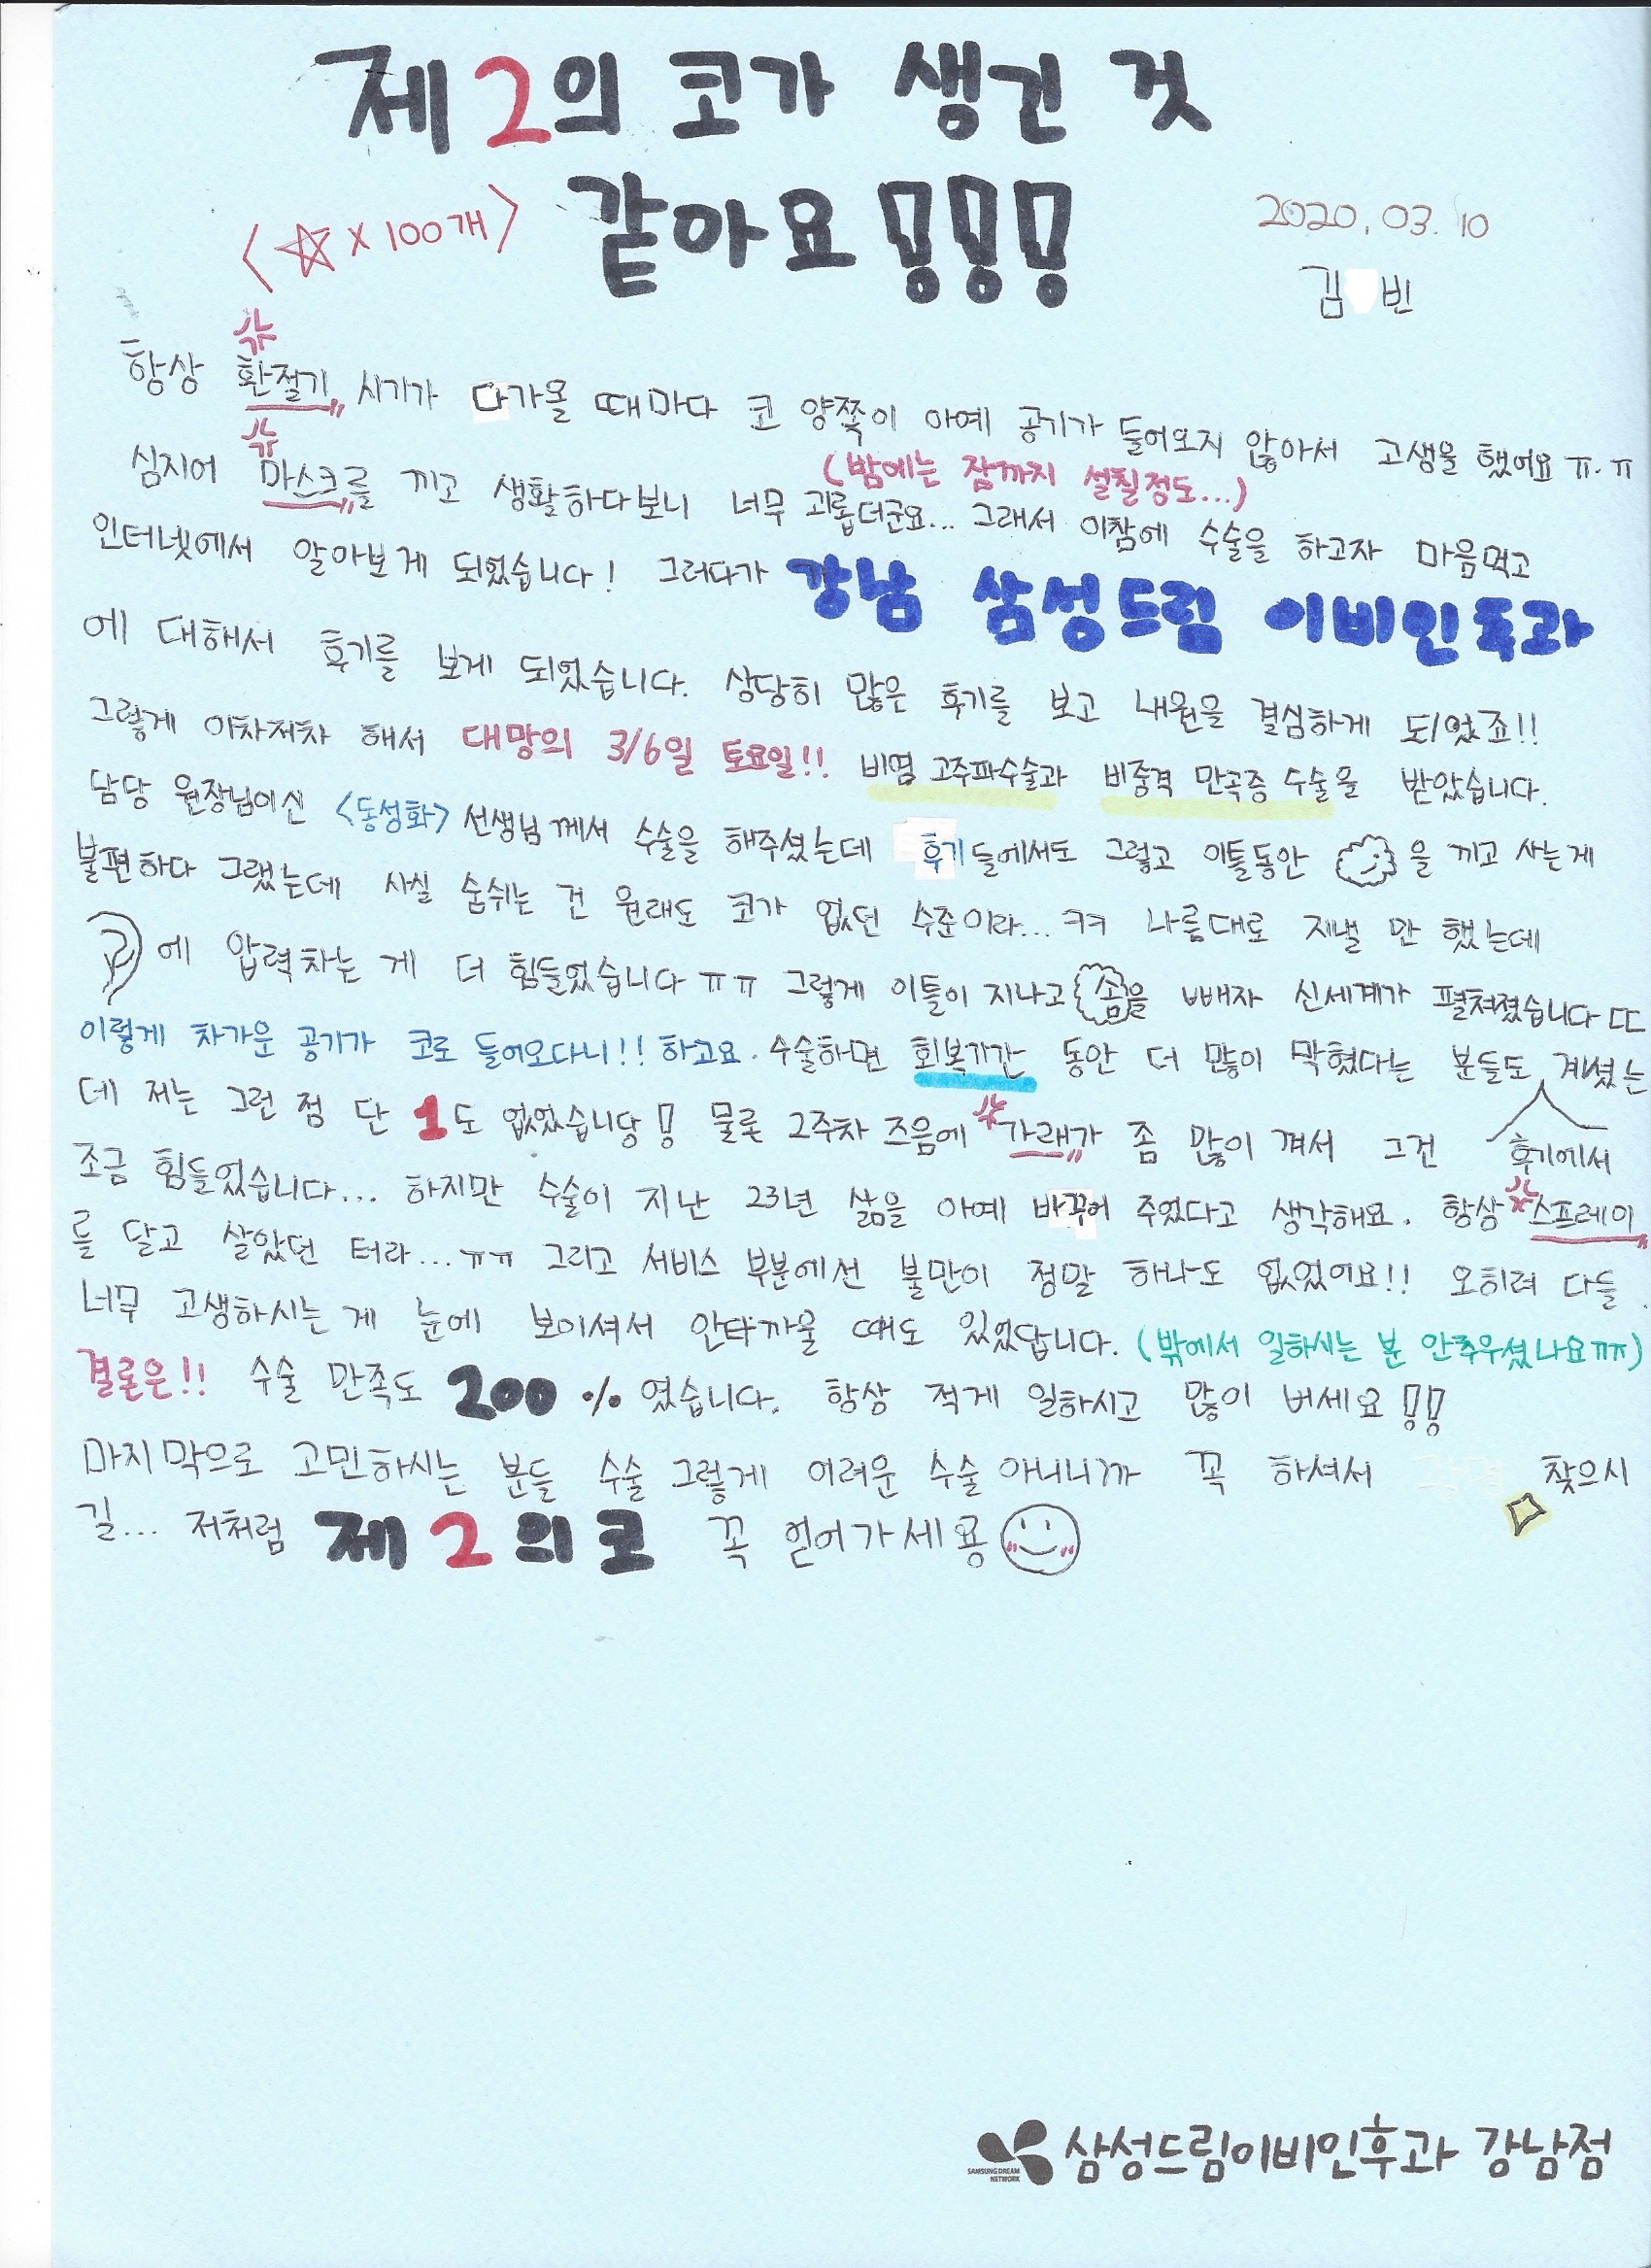 제2의 코가 생긴 것
같아요!!!
<☆ X 100개>
2020.03.10
김 빈
항상 환절기 시기가 다가올 때마다 코 양쪽이 아예 공기가 들어오지 않아서 고생을 했어요 ㅠ.ㅠ
(밤에는 잠까지 설칠정도...)
심지어 마스크를 끼고 생활하다보니 너무 괴롭더군요... 그래서 이참에 수술을 하고자 마음먹고
인터넷에서 알아보게 되었습니다! 그러다가 강남 삼성드림 이비인후과
에 대해서 후기를 보게 되었습니다. 상당히 많은 후기를 보고 내원을 결심하게 되었죠!!
그렇게 이차저차 해서 대망의 3/6일 토요일!! 비염 고주파수술과 비중격 만곡증 수술을 받았습니다.
담당 원장님이신 <동성화> 선생님께서 수술을 해주셨는데 후기들에서도 그렇고 이틀동안 을 끼고 사는게
불편하다 그랬는데 사실 숨쉬는 건 원래도 코가 없던 수준이라...ㅋㅋ 나름대로 지낼 만 했는데
에 압력차는 게 더 힘들었습니다ㅠㅠ 그렇게 이틀이 지나고 솜을 빼자 신세계가 펼쳐졌습니다ㄷㄷ
이렇게 차가운 공기가 코로 들어오다니!! 하고요. 수술하면 회복기간 동안 더 많이 막혔다는 분들도 계셨는
데 저는 그런 점 단 1도 없었습니당! 물론 2주차 즈음에 가래가 좀 많이 껴서 그건
후기에서
조금 힘들었습니다... 하지만 수술이 지난 23년 삶을 아예 바꾸어 주었다고 생각해요. 항상 스프레이
를 달고 살았던 터라...ㅠㅠ 그리고 서비스 부분에선 불만이 정말 하나도 없었어요!! 오히려 다들
너무 고생하시는 게 눈에 보이셔서 안타까울 때도 있었답니다. (밖에서 일하시는 분 안추우셨나요ㅠㅠ)
결론은!! 수술 만족도 200% 였습니다. 항상 적게 일하시고 많이 버세요!!
마지막으로 고민하시는 분들 수술 그렇게 어려운 수술 아니니까 꼭 하셔서 찾으시
길... 저처럼 제2의코 꼭 얻어가세용
SAMSUNG DREAM
NETWORK
삼성드림이비인후과 강남점